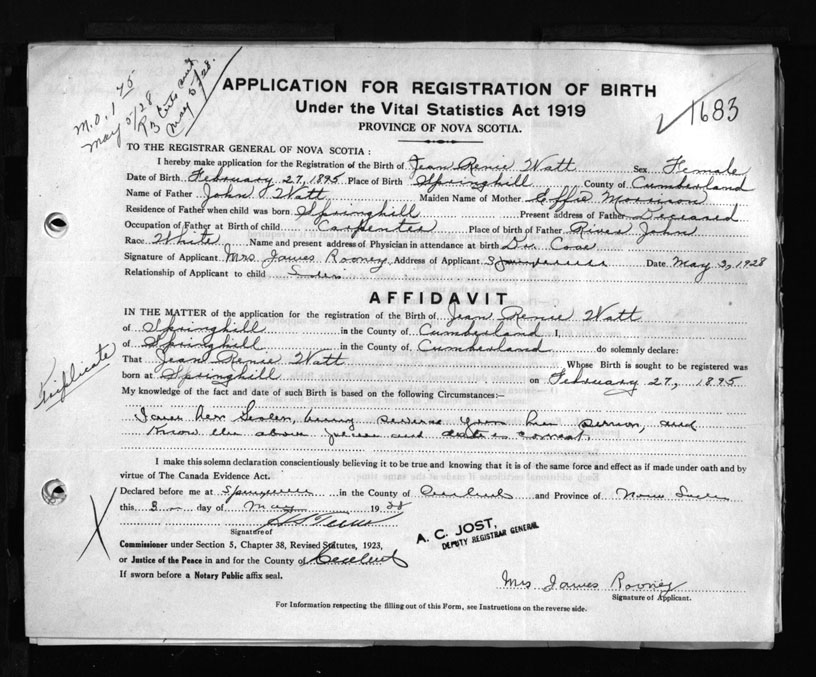 M.O. 1 75
May 5/28
May 5/28.
APPLICATION FOR REGISTRATION OF BIRTH
Under the Vital Statistics Act 1919
PROVINCE OF NOVA SCOTIA.
1683
TO THE REGISTRAR GENERAL OF NOVA SCOTIA :
I hereby make application for the Registration of the Birth of Jean Renie Watt Sex Female
Date of Birth February 27, 1895 Place of Birth Springhill County of Cumberland
Name of Father John Watt Maiden Name of Mother Effie Morrison
Residence of Father when child was born Springhill Present address of Father Deceased
Occupation of Father at Birth of child Carpenter Place of birth of Father River John
Race White Name and present address of Physician in attendance at birth Dr. Cove
Signature of Applicant Mrs James Rooney Address of Applicant Date May 3, 1928
Relationship of Applicant to child
AFFIDAVIT
IN THE MATTER of the application for the registration of the Birth of Jean Renie Watt
of Springhill in the County of Cumberland I,
of Springhill in the County of Cumberland do solemnly declare:
Triplicate
That Jean Renie Watt Whose Birth is sought to be registered was
born at Springhill on February 27, 1895
My knowledge of the fact and date of such Birth is based on the following Circumstances:—
I am her Sister, being years her and
Know the above and date is correct.
I make this solemn declaration conscientiously believing it to be true and knowing that it is of the same force and effect as if made under oath and by
virtue of The Canada Evidence Act.
Declared before me at in the County of and Province of Nova
this 3 day of May 1928
Signature of
A. C. JOST,
DEPUTY REGISTRAR GENERAL
X
Commissioner under Section 5, Chapter 38, Revised Statutes, 1923,
or Justice of the Peace in and for the County of
If sworn before a Notary Public affix seal.
Mrs James Rooney
Signature of Applicant.
For Information respecting the filling out of this Form, see Instructions on the reverse side.